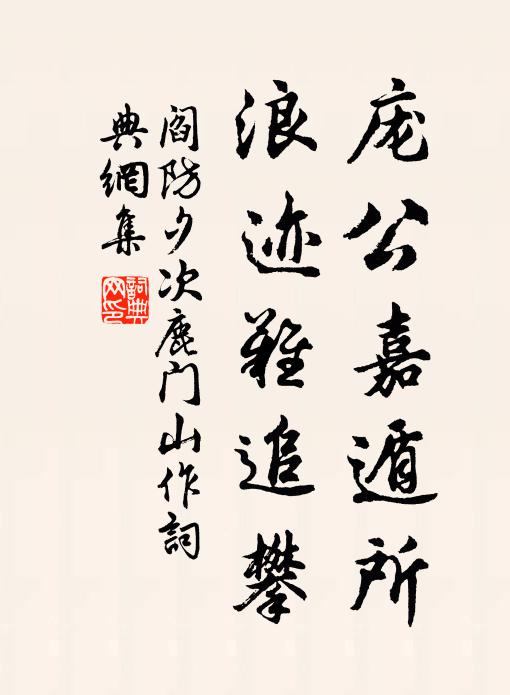 庞公嘉遁所
浪迹难追攀
閻防夕次鹿门山作詞
典網集
詞典网印